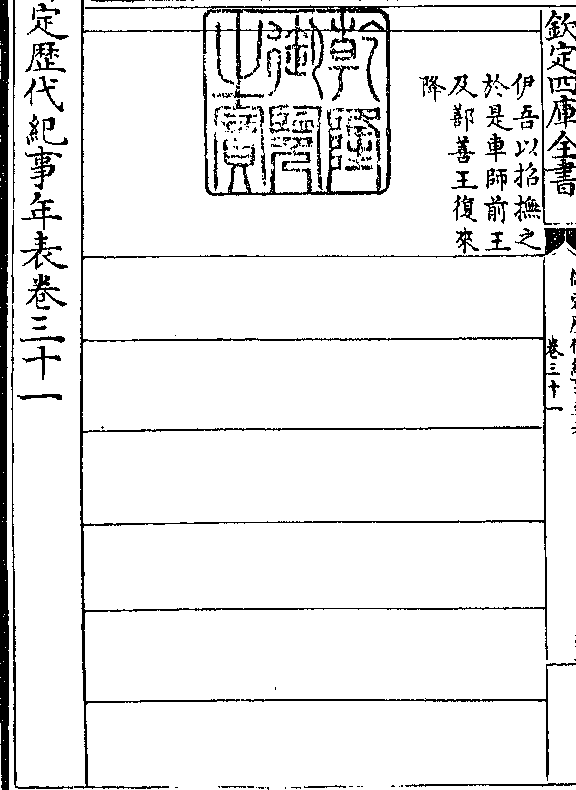 欽定四庫全書
卷三十一
伊吾以招撫之
於是車師前王
及鄯善王復來
降
乾隆御覽之寶
定歷代紀事年表卷三十一